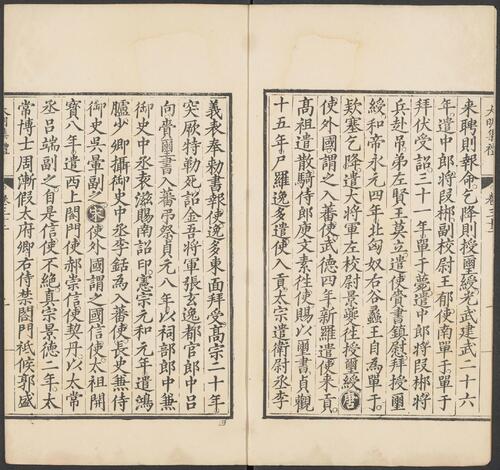 來聘則報命乞降則授璽綬光武建武二十六
年遣中郎將段郴副校尉王郁使南單于單于
拜伏受詔三十一年單于薨遣中郎將段郴將
兵赴弔弟左賢王莫立遣使賫書鎮慰拜授璽
綬和帝永元四年北匈奴右谷蠡王自為單于
欵塞乞降遣大將軍左校尉耿夔徃授璽綬唐
使外國謂之入蕃使武德四年新羅遣使來貢
高祖遣散騎侍郎庾文素徃使賜以璽書貞觀
十五年尸羅逸多遣使入貢太宗遣衛尉丞李
義表奉勅書報使逸多東面拜受高宗二十年
突厥特勒死詔金吾將軍張玄逸都官郎中呂
向賫璽書入蕃弔祭貞元八年以祠部郎中兼
御史中丞袁滋賜南詔印憲宗元和元年遣鴻
臚少卿攝御史中丞李銛為入蕃使長史兼侍
御史吳暈副之宋使外國謂之國信使太祖開
寶八年遣西上閤門使郝崇信使契丹以太常
丞呂端副之自是信使不絶真宗景德二年太
常博士周漸假太府卿右侍禁閤門祗候郭盛